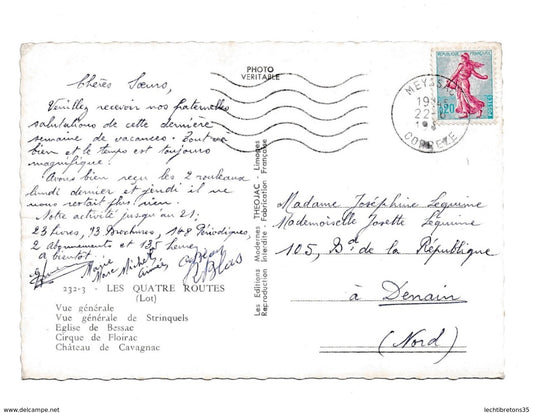 PHOTO
VERITABLE
Chères Sœurs,
Veuillez recevoir nos fraternelles
salutations de cette dernière
semaine de vacances. Tout va
bien et le temps est toujours
magnifique.
Avons bien reçu les 2 rouleaux
lundi dernier et jeudi il ne
nous restait plus rien.
Notre activité jusqu'au 21:
23 Livres, 93 Brochures, 148 Périodiques,
2 Abonnements et 135 heures
à bientôt.
Marie
Marc Michel
232-3 - LES QUATRE ROUTES
(Lot)
Vue générale
Vue générale de Strinquels
Eglise de Bessac
Cirque de Floirac
Château de Cavagnac
Les Editions Modernes THEOJAC - Limoges
Reproduction Interdite - Fabrication Française
REPUBLIQUE FRANÇAISE
0,20
POSTES
MEYSSAC
19
22
19
CORREZE
Madame Joséphine Lequime
Mademoiselle Josette Lequime
105, Bd de la République
à Denain
(Nord)
www.delcampe.net
lechtibretons35